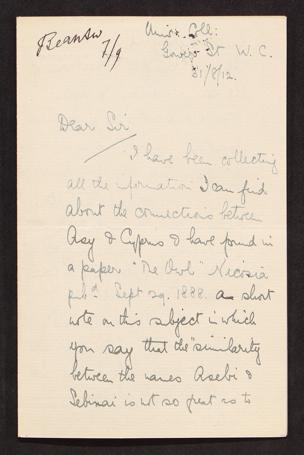 Beansw
7/9
Univ. Coll:
Gower St W. C.
31/8/12.
Dear Sir
I have been collecting
all the information I can find
about the connections between
Asy & Cyprus & have found in
a paper "The Owl" Nicosia
pubd Sept 29. 1888. a short
note on this subject in which
you say that the "similarity
between the names Asebi &
Sebinai is not so great as to